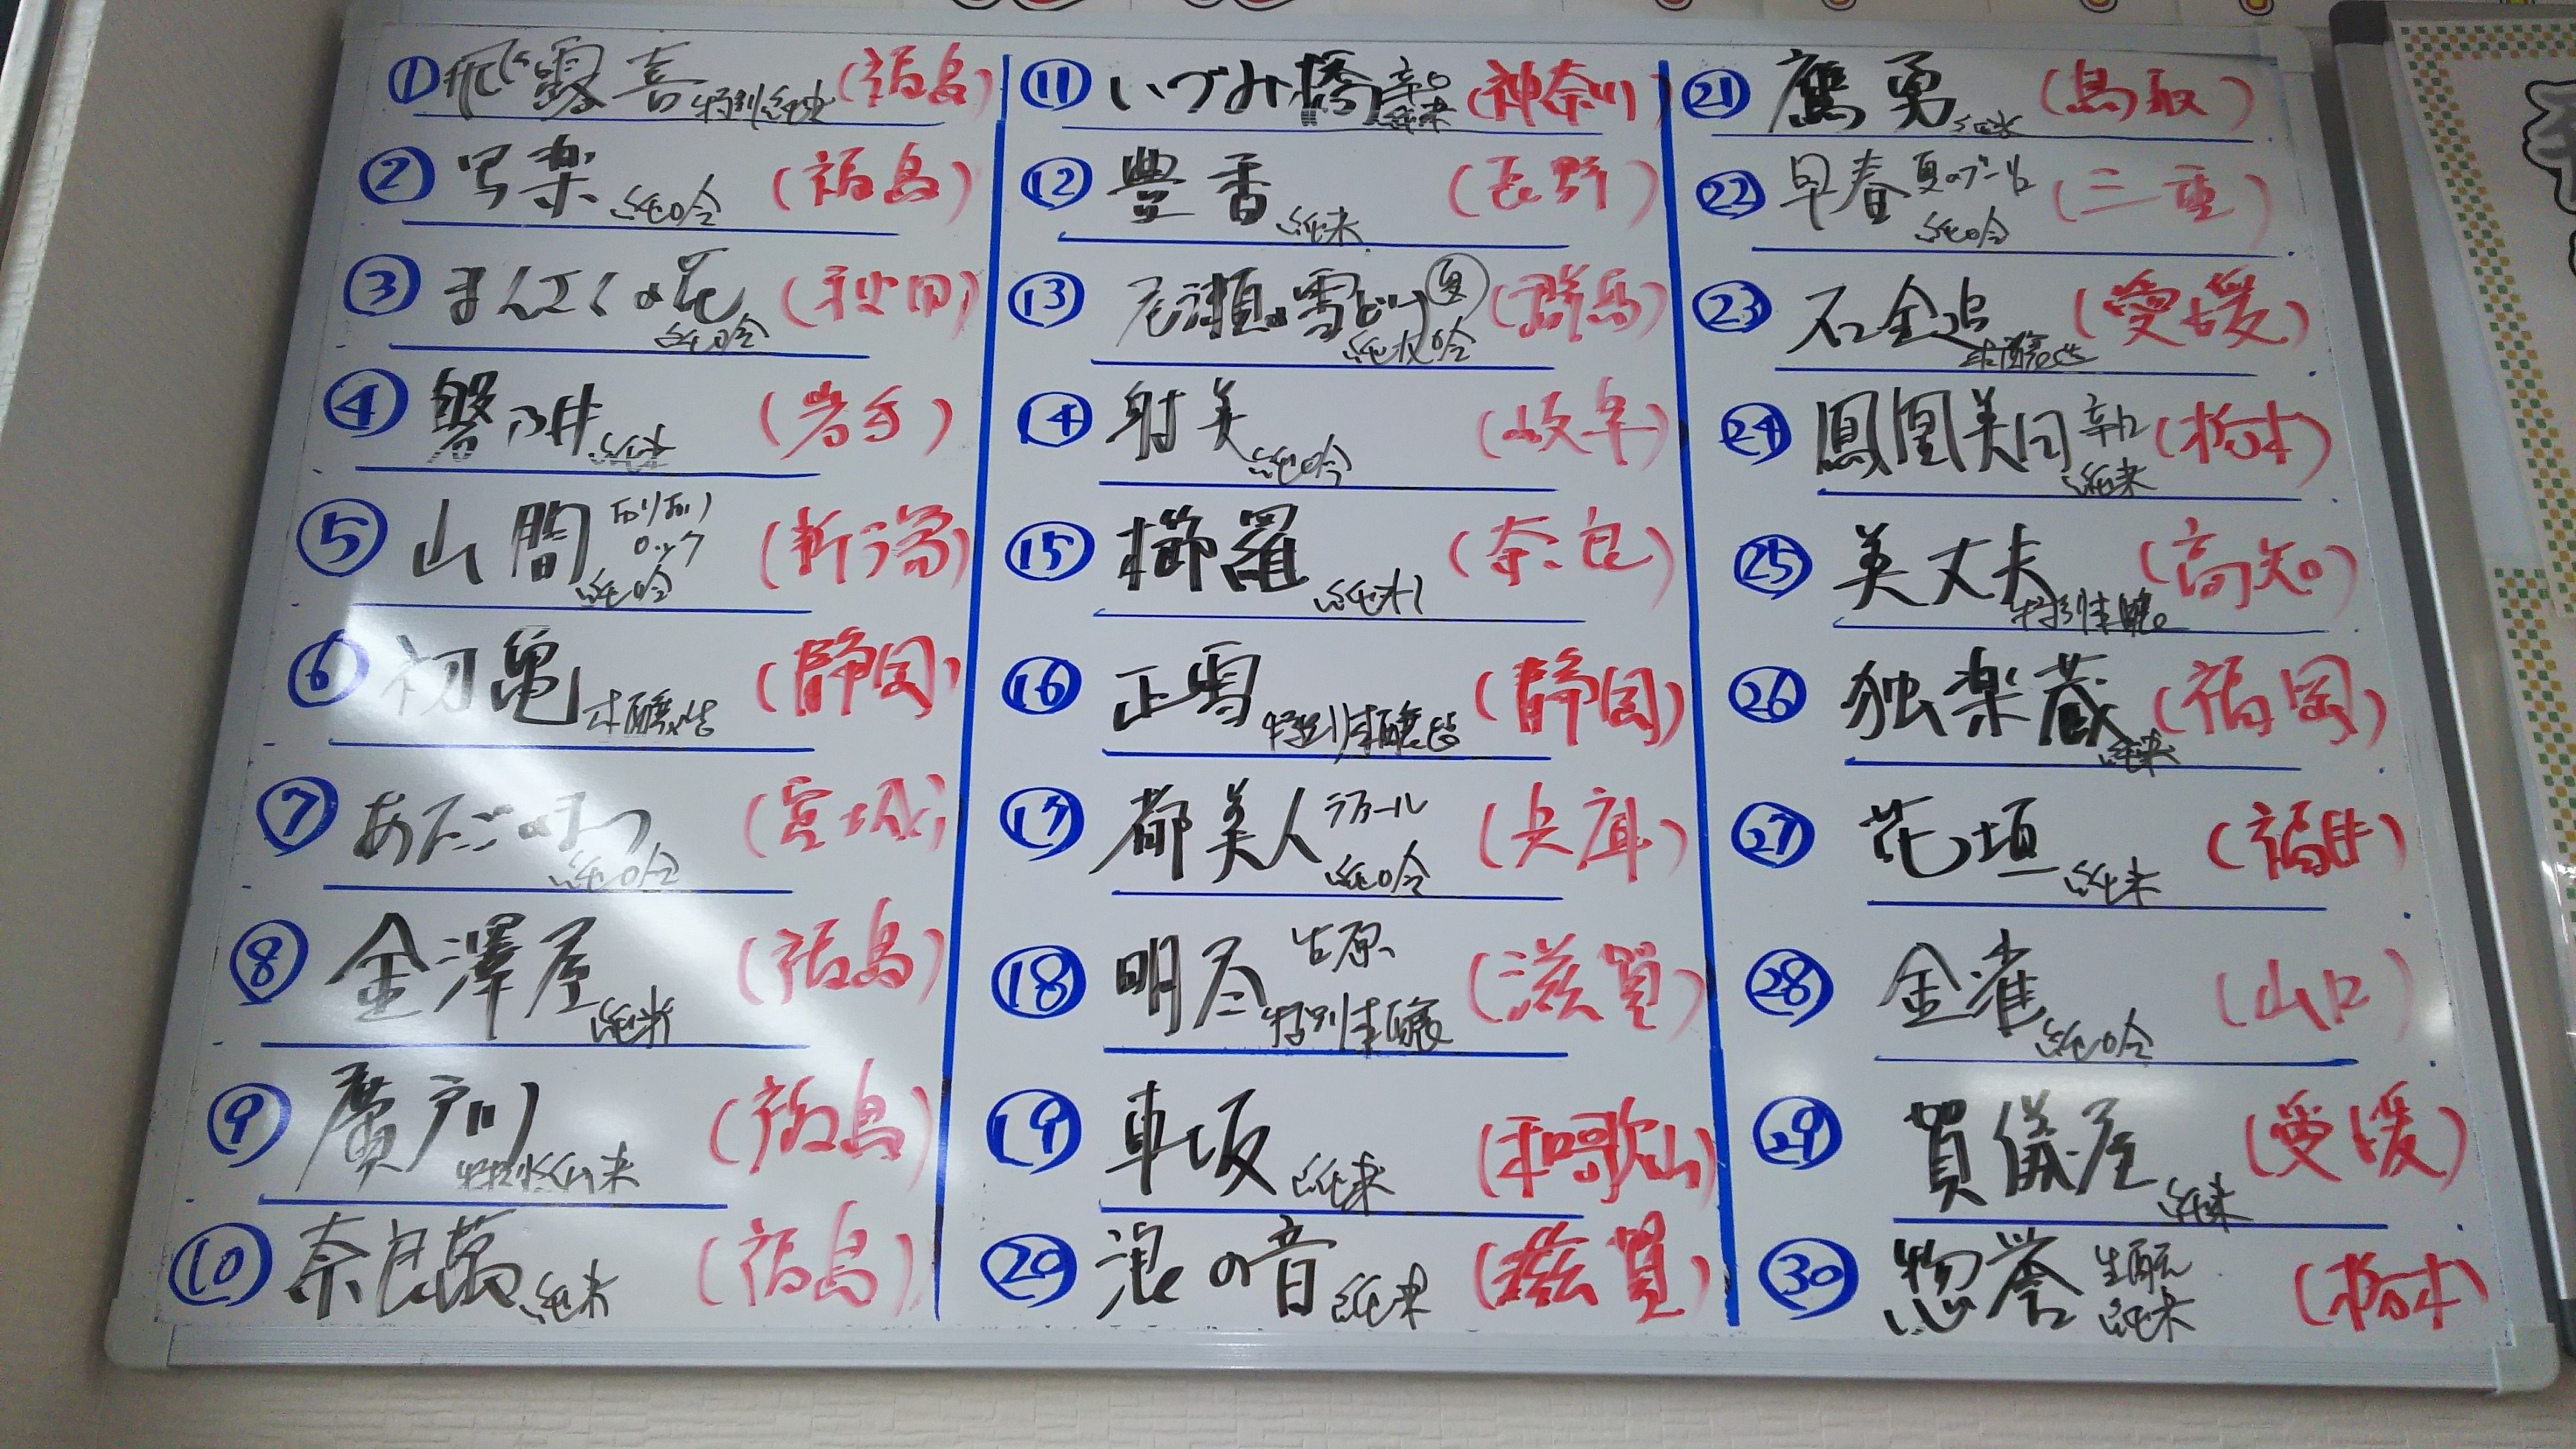 ① 飛露喜 特別純米 (福島)
② 写楽 純吟 (福島)
③ まんさくの花 純吟 (秋田)
④ 磐乃井 純米 (岩手)
⑤ 山間 純吟 (新潟)
⑥ 初亀 本醸造 (静岡)
⑦ あたごのまつ 純吟 (宮城)
⑧ 金澤屋 純米 (福島)
⑨ 廣戸川 純米 (福島)
⑩ 奈良萬 純米 (福島)
⑪ いづみ橋 辛口 純米 (神奈川)
⑫ 豊香 純米 (長野)
⑬ 尾瀬の雪どけ 夏 純大吟 (群馬)
⑭ 射美 純吟 (岐阜)
⑮ 櫛羅 純米 (奈良)
⑯ 正雪 特別本醸造 (静岡)
⑰ 都美人 ラファール 純吟 (兵庫)
⑱ 明尽 生原 特別本醸 (滋賀)
⑲ 車坂 純米 (和歌山)
⑳ 浪の音 純米 (滋賀)
㉑ 鷹勇 純米 (鳥取)
㉒ 早春 夏のブール 純吟 (三重)
㉓ 石鎚 本醸造 (愛媛)
㉔ 鳳凰美田 辛口 純米 (栃木)
㉕ 美丈夫 特別本醸 (高知)
㉖ 独楽蔵 純米 (福岡)
㉗ 花垣 純米 (福井)
㉘ 金雀 純吟 (山口)
㉙ 賀儀屋 純米 (愛媛)
㉚ 惣誉 生酛 純米 (栃木)